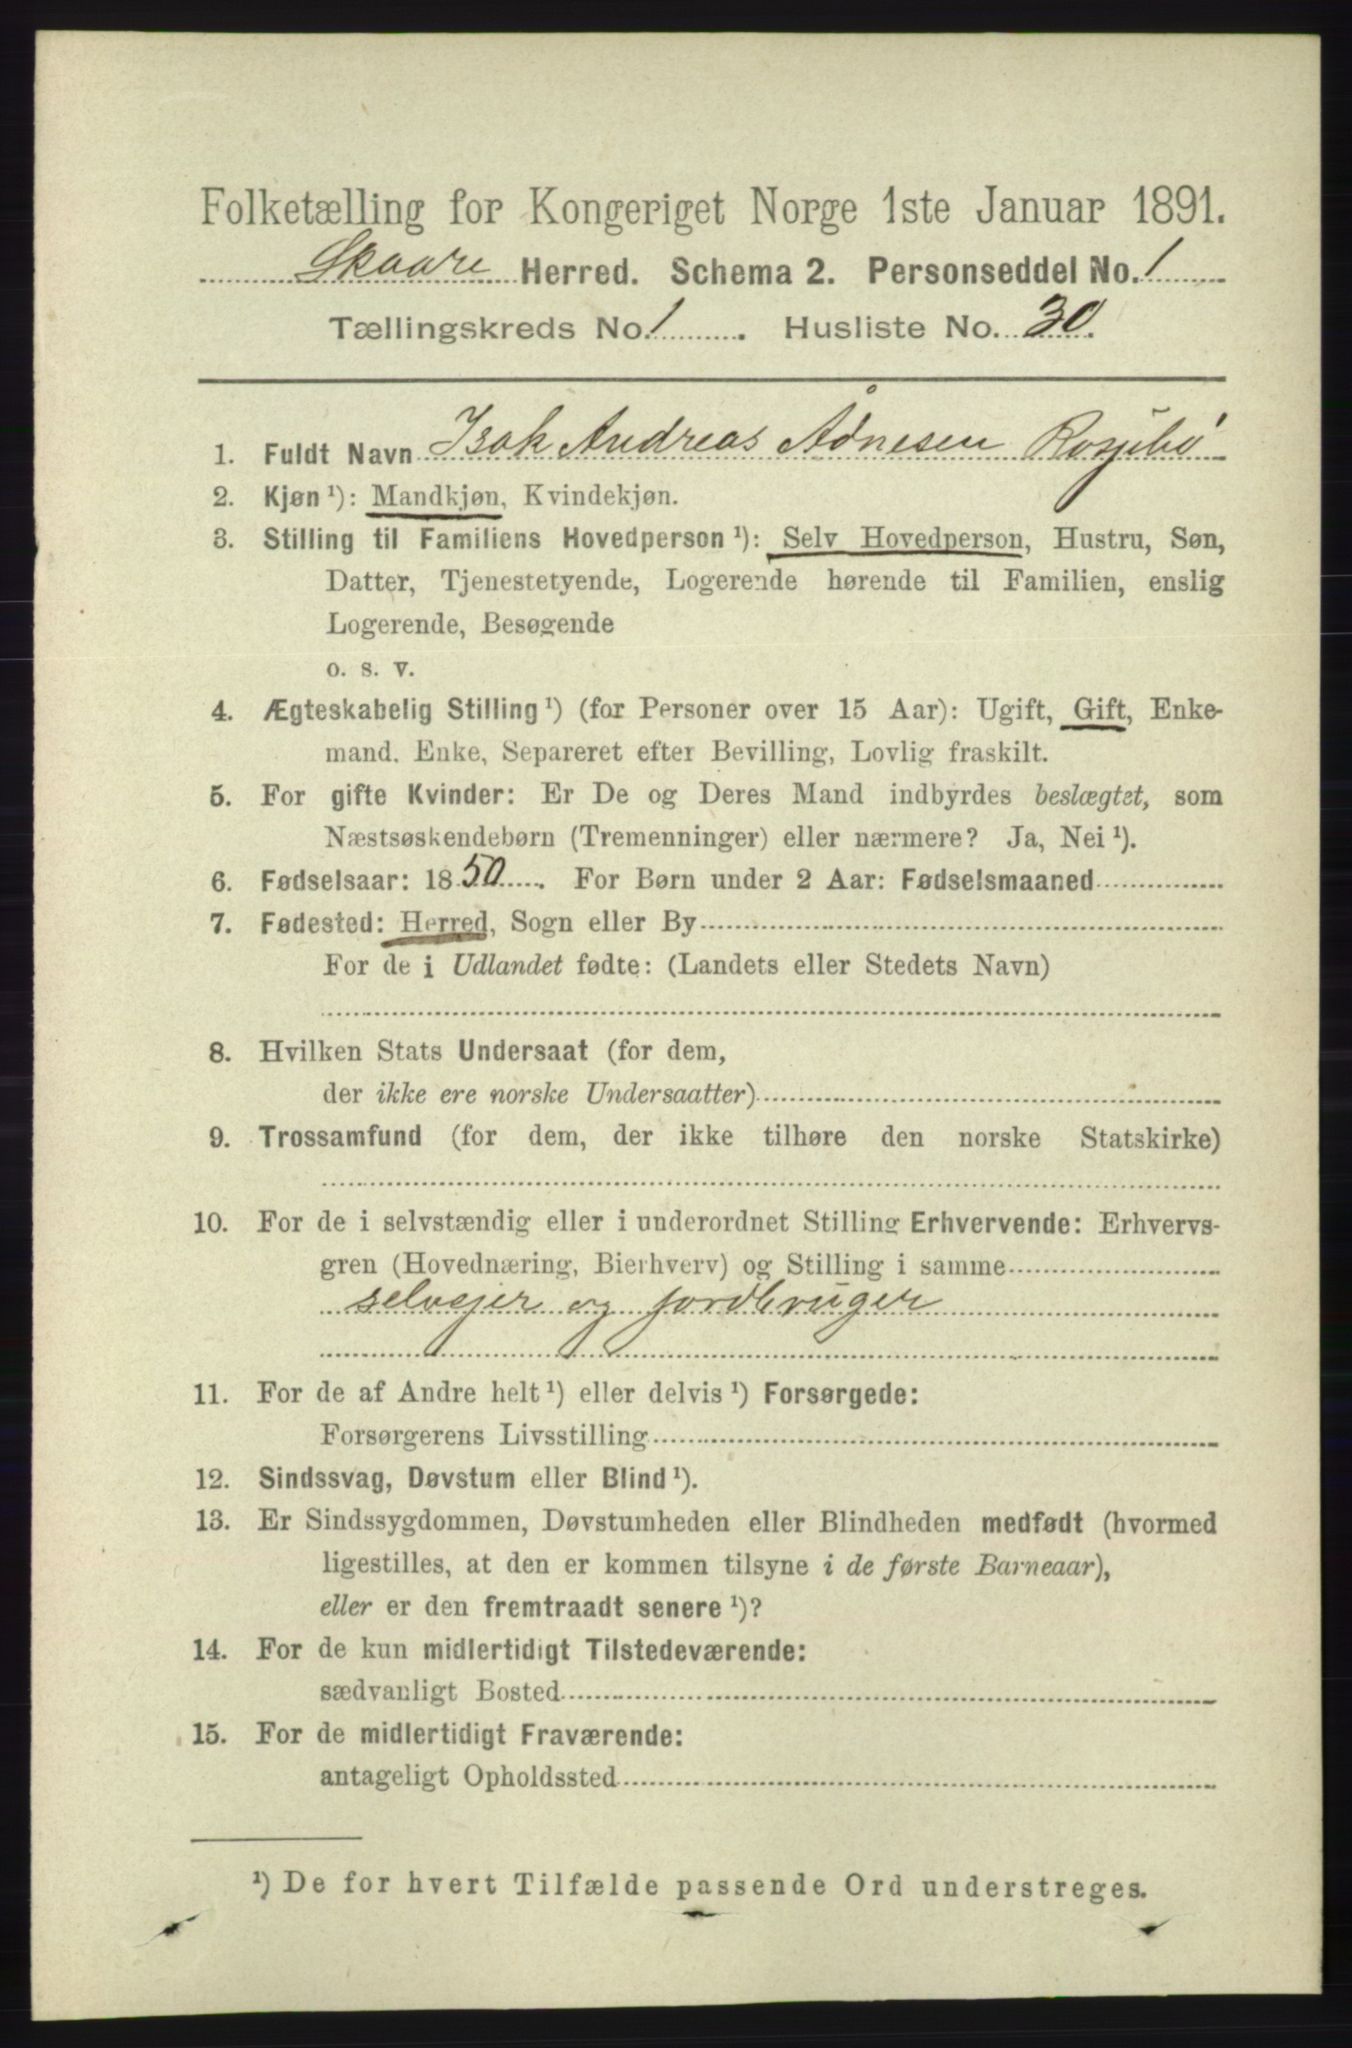 Folketælling for Kongeriget Norge 1ste Januar 1891.
Skaare Herred. Schema 2. Personseddel No. 1
Tællingskreds No. 1. Husliste No. 30.
1. Fuldt Navn Isak Andreas Ådnesen
2. Kjøn ¹): Mandkjøn, Kvindekjøn.
3. Stilling til Familiens Hovedperson ¹): Selv Hovedperson, Hustru, Søn,
Datter, Tjenestetyende, Logerende hørende til Familien, enslig
Logerende, Besøgende
o. s. v.
4. Ægteskabelig Stilling ¹) (for Personer over 15 Aar): Ugift, Gift, Enke-
mand. Enke, Separeret efter Bevilling, Lovlig fraskilt.
5. For gifte Kvinder: Er De og Deres Mand indbyrdes beslægtet, som
Næstsøskendebørn (Tremenninger) eller nærmere? Ja, Nei ¹).
6. Fødselsaar: 1850. For Børn under 2 Aar: Fødselsmaaned
7. Fødested: Herred, Sogn eller By
For de i Udlandet fødte: (Landets eller Stedets Navn)
8. Hvilken Stats Undersaat (for dem,
der ikke ere norske Undersaatter)
9. Trossamfund (for dem, der ikke tilhøre den norske Statskirke)
10. For de i selvstændig eller i underordnet Stilling Erhvervende: Erhvervs-
gren (Hovednæring, Bierhverv) og Stilling i samme
selvejer og jordbruger
11. For de af Andre helt ¹) eller delvis ¹) Forsørgede:
Forsørgerens Livsstilling
12. Sindssvag, Døvstum eller Blind ¹).
13. Er Sindssygdommen, Døvstumheden eller Blindheden medfødt (hvormed
ligestilles, at den er kommen tilsyne i de første Barneaar),
eller er den fremtraadt senere ¹)?
14. For de kun midlertidigt Tilstedeværende:
sædvanligt Bosted
15. For de midlertidigt Fraværende:
antageligt Opholdssted
¹) De for hvert Tilfælde passende Ord understreges.